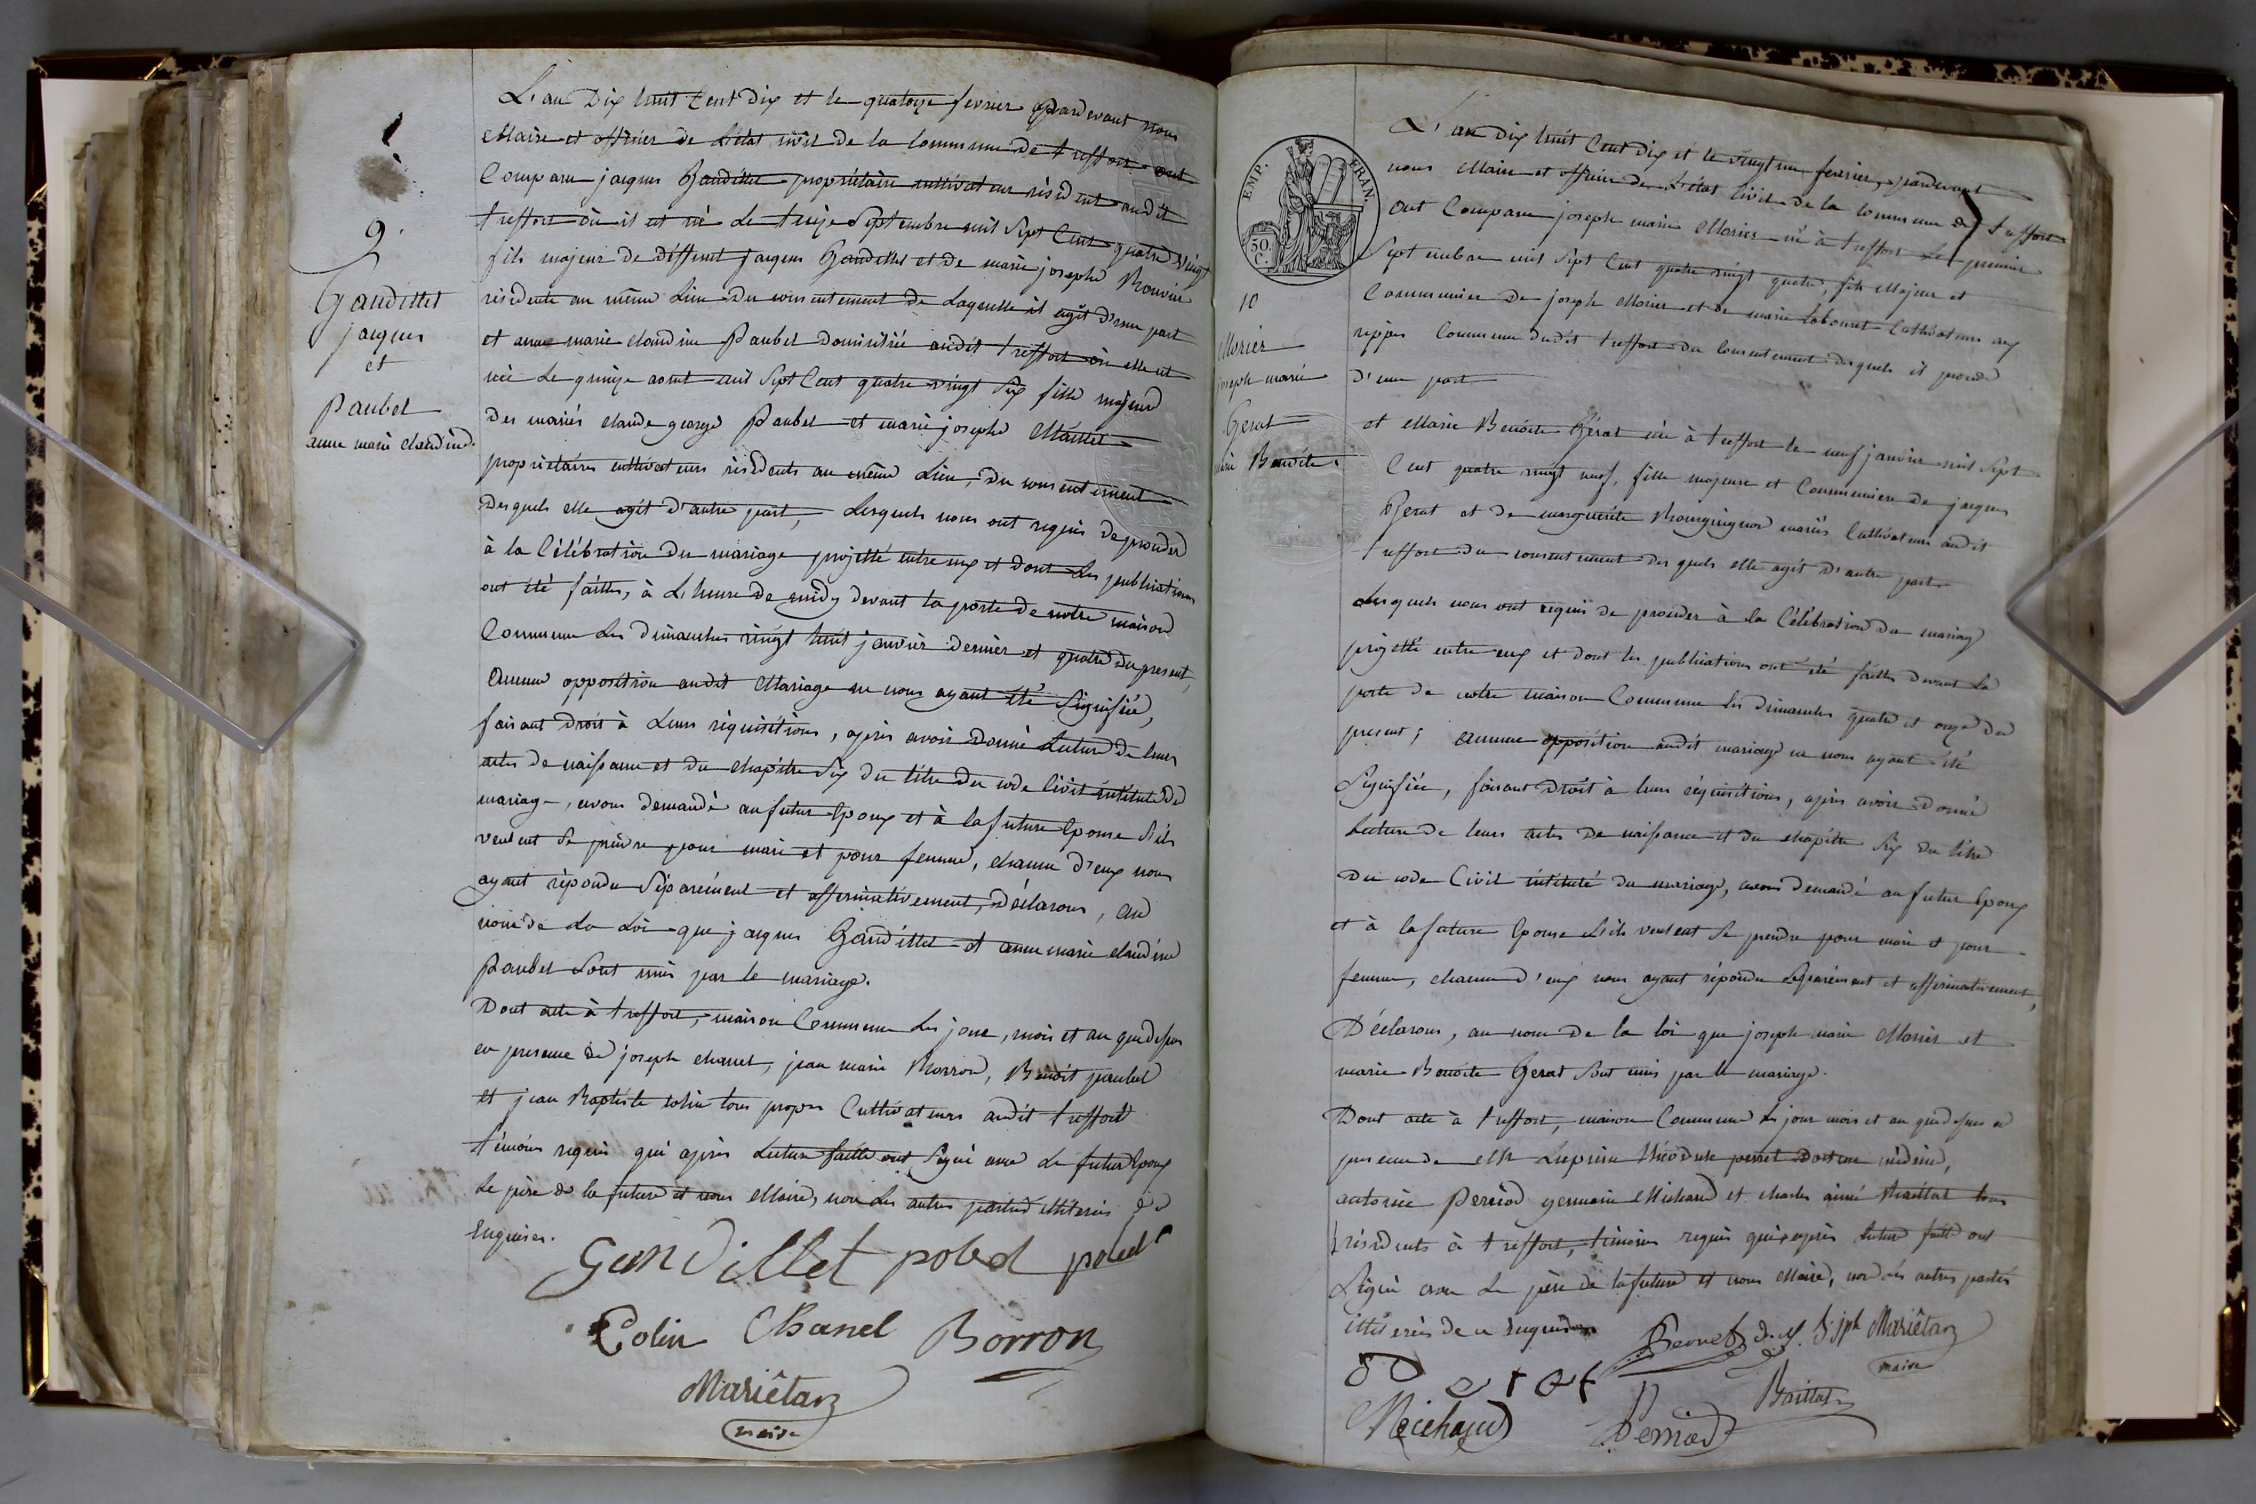 9.
Gandillet
jacques
et
Paubel
anne marie claudine.
L'an Dix huit Cent Dix et le quatorze fevrier pardevant nous
Maire et officier de L'état civil de la Commune de treffort ont
Comparu jacques Gandillet propriétaire cultivateur résident audit
treffort où il est né Le treize Septembre mil Sept Cent quatre vingt
fils majeur de deffunt jacques Gandillet et de marie josephe Rouvier
résidente au même Lieu du consentement de Laquelle il agit d'une part
et anne marie claudine Paubel domiciliée audit treffort où elle est
née Le quinze aout mil Sept Cent quatre vingt Six fille majeure
des mariés claude george Paubel et marie josephe Maillet
propriétaires cultivateurs résidents au même Lieu, du consentement
desquels elle agit d'autre part, Lesquels nous ont requis de proceder
à la Célébration du mariage projetté entre eux et dont Les publications
ont été faittes, à L'heure de midy devant la porte de notre maison
Commune Les dimanches vingt huit janvier dernier et quatre du present,
aucune opposition audit Mariage ne nous ayant été Signifiée,
faisant droit à Leurs réquisitions, après avoir donné Lecture de leurs
actes de naissance et du chapitre Six du titre du code Civil intitulé De
mariage, avons demandé au futur Epoux et à la future Epouse S'ils
veulent Se prendre pour mari et pour femme, chacun d'eux nous
ayant répondu Séparément et affirmativement, Déclarons, au
nom de La Loi que jacques Gandillet et anne marie claudine
Paubel Sont unis par le mariage.
Dont acte à treffort, maison Commune Les jour, mois et an que dessus
en presence de joseph chanel, jean marie Borron, Benoit paubel
et jean Baptiste colin tous propres Cultivateurs audit treffort
témoins requis qui après Lecture faitte ont Signé avec Le futur Epoux
Le père de la future et nous Maire, non Les autres parties illiterés de ce
Enquises.
Gandillet pobel pobel
Colin Chanel Borron
Mariêtan
maire
EMP. FRAN.
50. C.
10
Morier
joseph marie
Gerat
marie Benoite.
L'an dix huit Cent dix et le vingt un fevrier, pardevant
nous Maire et officier de L'état Civil de la Commune de treffort
ont Comparu joseph marie Morier né à treffort Le premier
Septembre mil Sept Cent quatre vingt quatre, fils Majeur et
Commun de joseph Morier et de marie Cultivateurs aux
Commune dudit treffort du Consentement desquels il procede
d'une part
et Marie Benoite Gerat née à treffort le neuf janvier mil Sept
Cent quatre vingt neuf, fille majeure et Commune de jacques
Gerat et de marguerite Bourguignon mariés Cultivateurs audit
treffort du consentement des quels elle agit d'autre part.
Lesquels nous ont requis de proceder à la Célébration du mariage
projetté entre eux et dont les publications ont été faittes devant La
porte de notre maison Commune Les dimanches quatre et onze du
present; aucune opposition audit mariage ne nous ayant été
Signifiée, faisant droit à leurs réquisitions, après avoir donné
Lecture de leurs actes de naissance et du chapitre Six du titre
du code Civil intitulé du mariage, avons demandé au futur Epoux
et à la future Epouse S'ils veulent Se prendre pour mari et pour
femme, chacun d'eux nous ayant répondu Séparément et affirmativement,
Déclarons, au nom de la loi que joseph marie Morier et
marie Benoite Gerat Sont unis par le mariage.
Dont acte à treffort, maison Commune Les jour mois et an que dessus en
presence de Nicodeme perret Docteur médecin,
Perriod germain Michaud et charles aimé Baillat tous
résidents à treffort, témoins requis qui après Lecture faitte ont
Signé avec Le père de la future et nous Maire, non Les autres parties
illiterés de ce Enquises
Perret d. m. Jph Mariêtan
maire
Baillat
Michaud Perriod